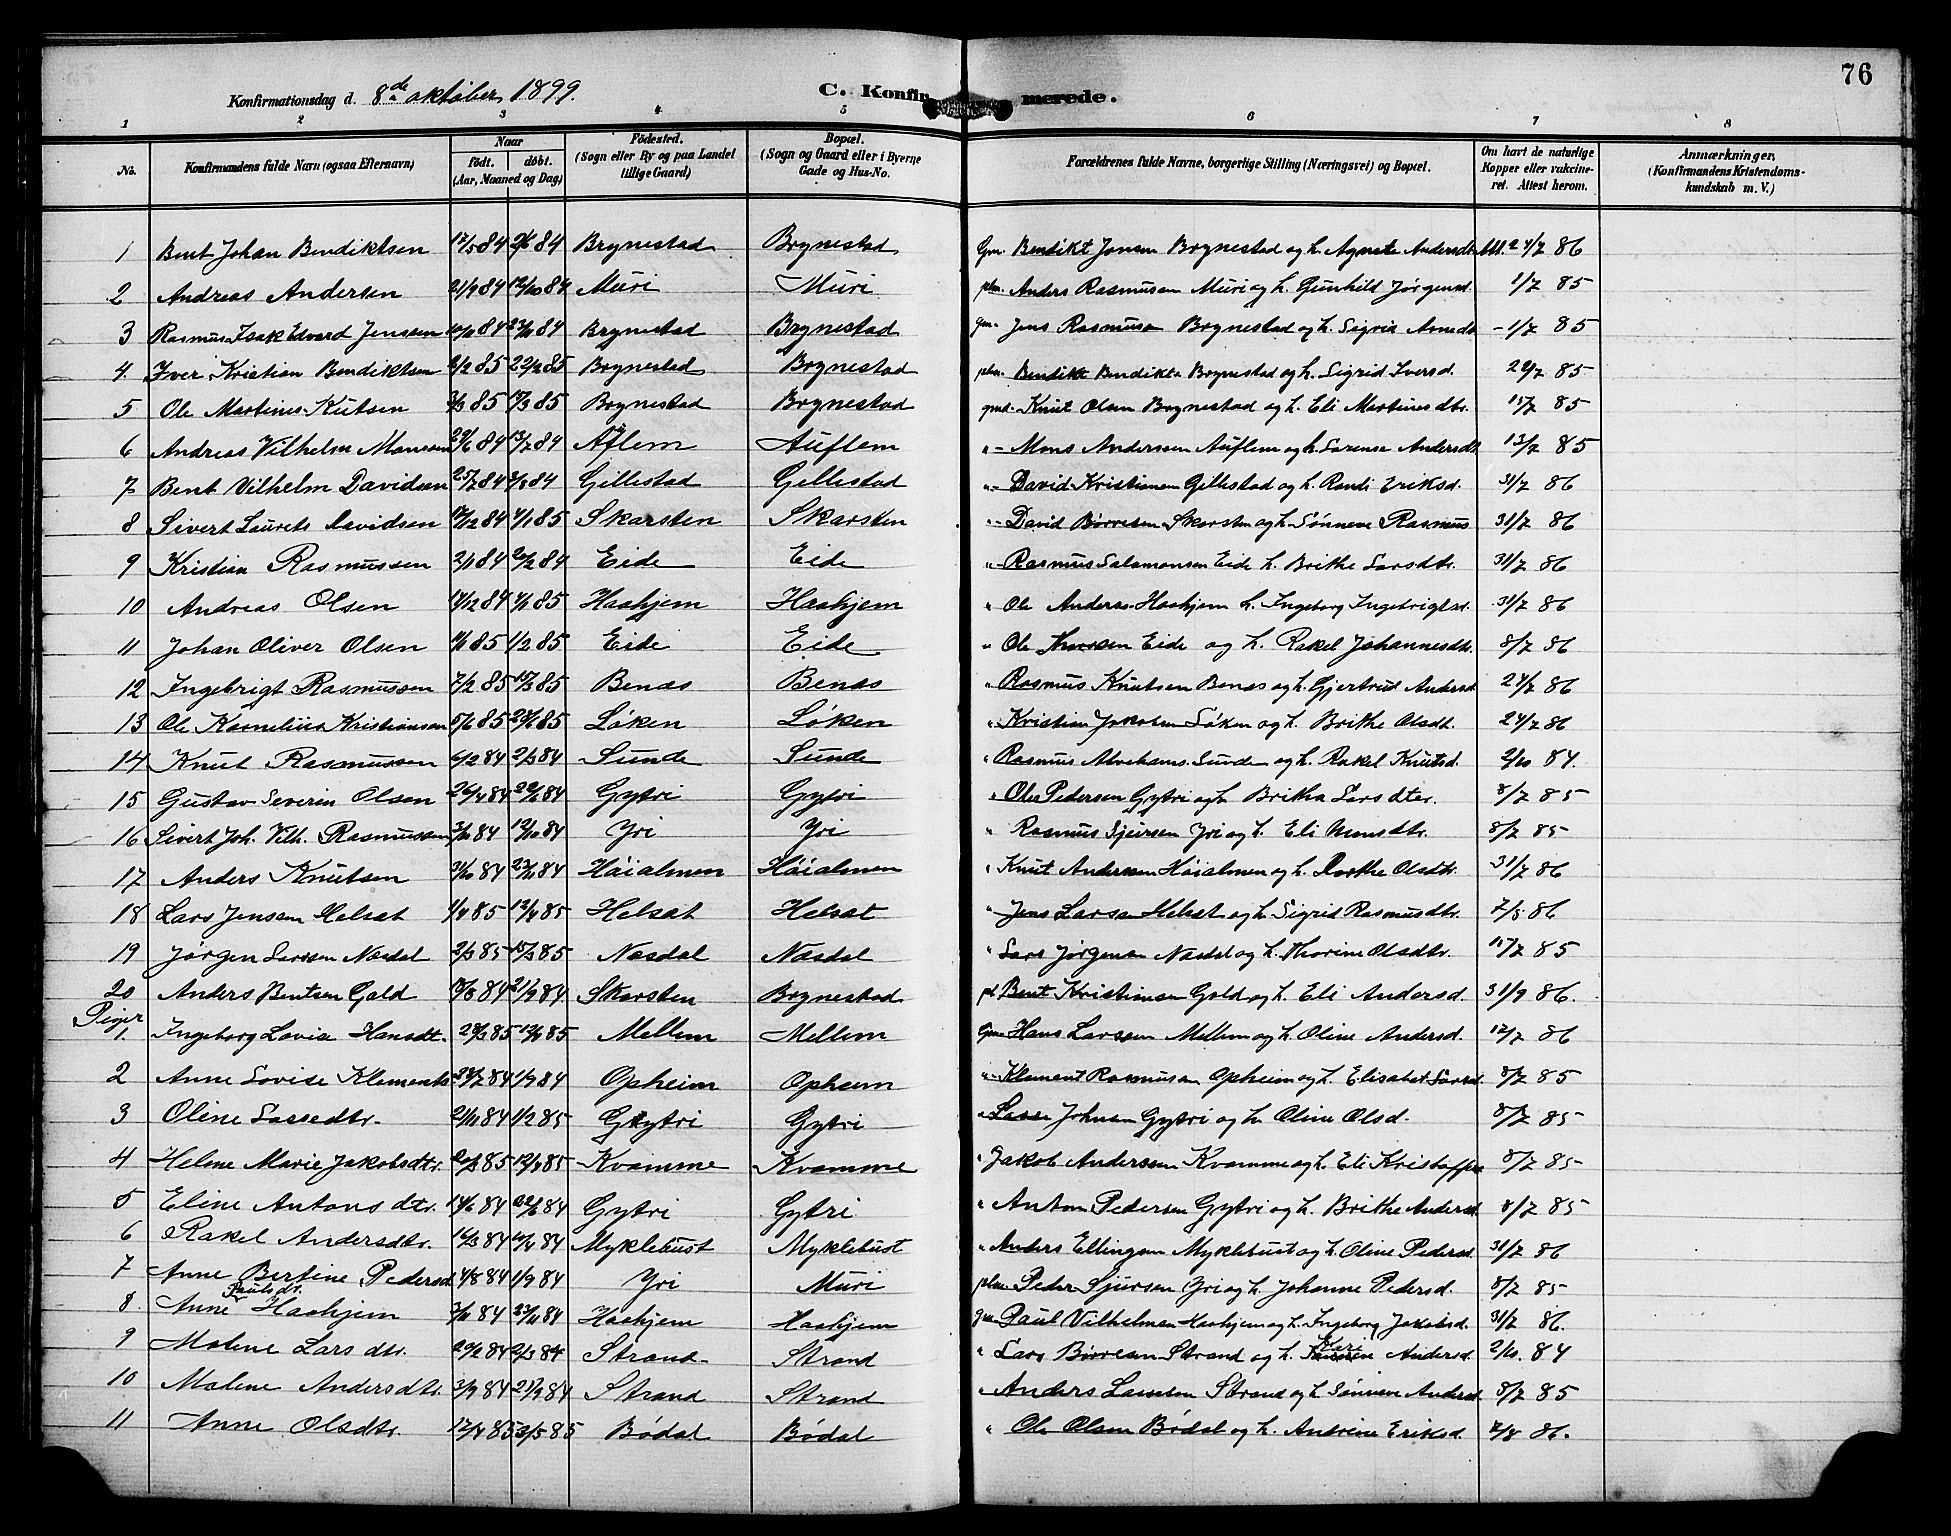 76
Konfirmationsdag d. 8de oktober 1899. C. Konfirmerede.
1 2 3 4 5 6 7 8
No. Konfirmandens fulde Navn (ogsaa Efternavn) Naar födt. döbt. (Aar, Maaned og Dag) Födested. (Sogn eller By og paa Landet tillige Gaard) Bopæl. (Sogn og Gaard eller i Byerne Gade og Hus-No. Forældrenes fulde Navne, borgerlige Stilling (Næringsvei) og Bopæl. Om havt de naturlige Kopper eller vakcineret. Attest herom. Anmærkninger. (Konfirmandens Kristendomskundskab m. V.)
1 Bent Johan Bendiktsen 17/5 84 84 Brynestad Brynestad Gm. Bendikt Jonsen Brynestad og h. Agnete Andersdtr. 24/7 86
2 Andreas Andersen 21/9 84 12/10 84 Muri Muri plm. Anders Rasmusen Muri og h. Gunhild Jørgensd. 1/7 85
3 Rasmus Isak Edvard Jenssen 84 23/11 84 Brynestad Brynestad Gm. Jens Rasmusen Brynestad og h. Sigrid Arnedt. 1/7 85
4. Iver Kristian Bendiktsen 2/2 85 22/2 85 Brynestad Brynestad plm. Bendikt Bendikts Brynestad og h. Sigrid Iversd. 22/7 85
5 Ole Martinus Knutsen 3/3 85 15/3 85 Brynestad Brynestad gmd. Knut Olsen Brynestad og h. Eli Martinusdtr. 15/7 85
6 Andreas Vilhelm Monsen 29/6 84 13/7 84 Aflem Auflem " Mons Anderssen Auflem og h. Sorense Andersdt. 13/7 85
7 Bent Vilhelm Davidsen 25/7 84 3/8 84 Gillestad Gillestad " David Kristiansen Gillestad og h. Randi Eriksd. 31/7 86
8 Sivert Laurets Davidsen 17/12 84 4/1 85 Skarsten Skarsten " David Børresen Skarsten og h. Sønneve Rasmus 31/7 86
9 Kristian Rasmussen 2/1 84 20/2 84 Eide Eide " Rasmus Salamonsen Eide h. Brithe Larsdtr. 31/7 86
10 Andreas Olsen 17/12 84 4/1 85 Haahjem Haahjem " Ole Anderss. Haahjem h. Ingeborg Ingebrigtsd. 31/7 86
11 Johan Oliver Olsen 11/1 85 1/2 85 Eide Eide " Ole Eide og h. Rakel Johannesdtr. 8/7 86
12 Ingebrigt Rasmussen 7/2 85 15/3 85 Benæs Benæs " Rasmus Knutsen Benæs og h. Gjertrud Andersd 24/7 86
13 Ole Kornelius Kristiansen 5/6 85 85 Løken Løken " Kristian Jakobsen Løken og h. Brithe Olsdtr. 24/7 86
14 Knut Rasmussen 6/2 84 2/3 84 Sunde Sunde " Rasmus Abrahams. Sunde og h. Rakel Knutsd. 2/10 84.
15 Gustav Severin Olsen 26/4 84 84 Gytri Gytri " Ole Pedersen Gytri og h. Britha Larsdter. 8/7 85
16 Sivert Joh. Vilh. Rasmussen 3/10 84 12/10 84 Yri Yri " Rasmus Sjursen Yri og h. Eli Monsdtr. 8/7 85
17 Anders Knutsen 31/10 84 23/11 84 Høialmen Høialmen " Knut Anderssen Høialmen og h. Dorthe Olsdtr. 31/7 86
18 Lars Jensen Helsæt 1/4 85 12/4 85 Helsæt Helsæt " Jens Larsen Helsæt og h. Sigrid Rasmusdtr. 7/8 86
19 Jørgen Larssen Næsdal 2/3 85 15/3 85 Næsdal Næsdal " Lars Jørgensen Næsdal og h. Thorine Olsdtr. 15/7 85
20 Anders Bentsen Gald 84 21/9 84 Skarsten Brynestad pl. Bent Kristiansen Gald og h. Eli Andersd. 31/9 86.
Piger
1. Ingeborg Lovise Hansdt. 28/3 85 12/4 85 Mellem Mellem Gm. Hans Larssen Mellem og h. Oline Andersd. 12/7 86
2 Anne Lovise Klements 84 1/9 84 Opheim Opheim " Klement Rasmusen Opheim og h. Elisabet Larsd. 8/7 85
3 Oline Lassedtr. 21/11 84 1/2 85 Gytri Gytri " Lasse Johnsen Gytri og h Oline Olsd. 8/7 85
4 Helene Marie Jakobsdtr. 85 12/4 85 Kvamme Kvamme " Jakob Anderssen Kvamme og h. Eli Kristoffers 8/7 85
5 Eline Antonsdtr. 14/6 84 22/6 84 Gytri Gytri " Anton Pedersen Gytri og h. Brithe Andersd. 8/7 85
6 Rakel Andersdtr. 16/3 84 84 Myklebust Myklebust " Anders Ellingsen Myklebust og h. Oline Pedersd. 31/7 86
7 Anne Bertine Pedersd. 4/8 84 1/9 84 Yri Muri plm. Peder Sjursen Yri og h. Johanne Pedersd. 8/7 85
8. Anne Paulsdt. Haahjem 3/11 84 23/11 84 Haahjem Haahjem Gm. Paul Vilhelmsen Haahjem og h. Ingeborg Jakobsd. 31/7 86.
9 Malene Larsdtr. 20/2 84 2/3 84 Strand Strand " Lars Børresen Strand og h. Kari Andersd. 2/10. 84
10 Malene Andersdtr. 3/9 84 21/9 84 Strand Strand " Anders Lassesen Strand og h. Sønneve Andersd. 8/7 85
11 Anne Olsdtr. 17/4 85 23/5 85 Bødal Bødal " Ole Olsen Bødal og h. Andrine Eriksd. 7/8 86.